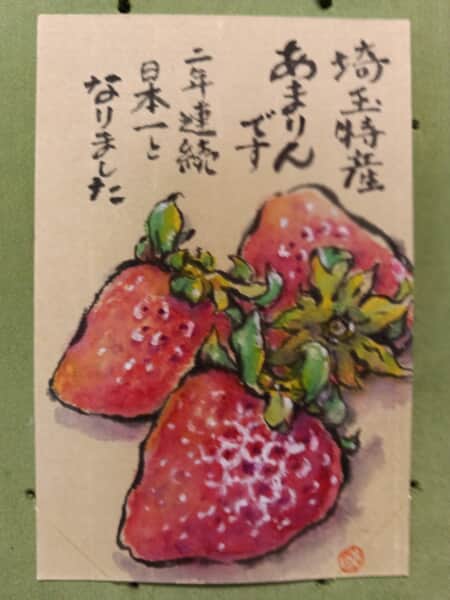 埼玉特産
あまりん
です
二年連続
日本一と
なりました